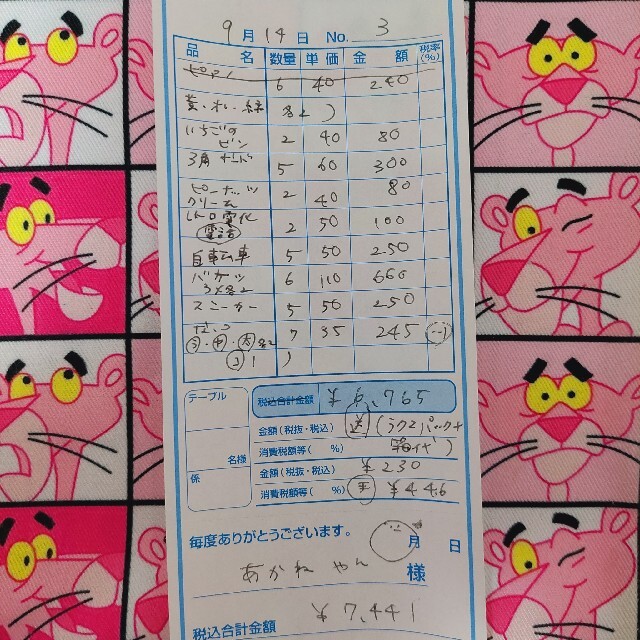 9月14日 No. 3
品名 数量 単価 金額 税率(%)
6 40 240
黄・れ・緑 各2 )
いちごの
ビン 2 40 80
3角 5 60 300
ピーナッツ
クリーム 2 40 80
レトロ電化
電話 2 50 100
自転車 5 50 250
バケツ
3×各2 6 110 660
スニーカー 5 50 250
7 35 245
テーブル
名様
係
税込合計金額 ¥6,765
金額(税抜・税込) 送(ラク2パック+
消費税額等( %) 箱代)
金額(税抜・税込) ¥230
消費税額等( %) 手 ¥446
毎度ありがとうございます。 月 日
あかね やん 様
税込合計金額 ¥7,441